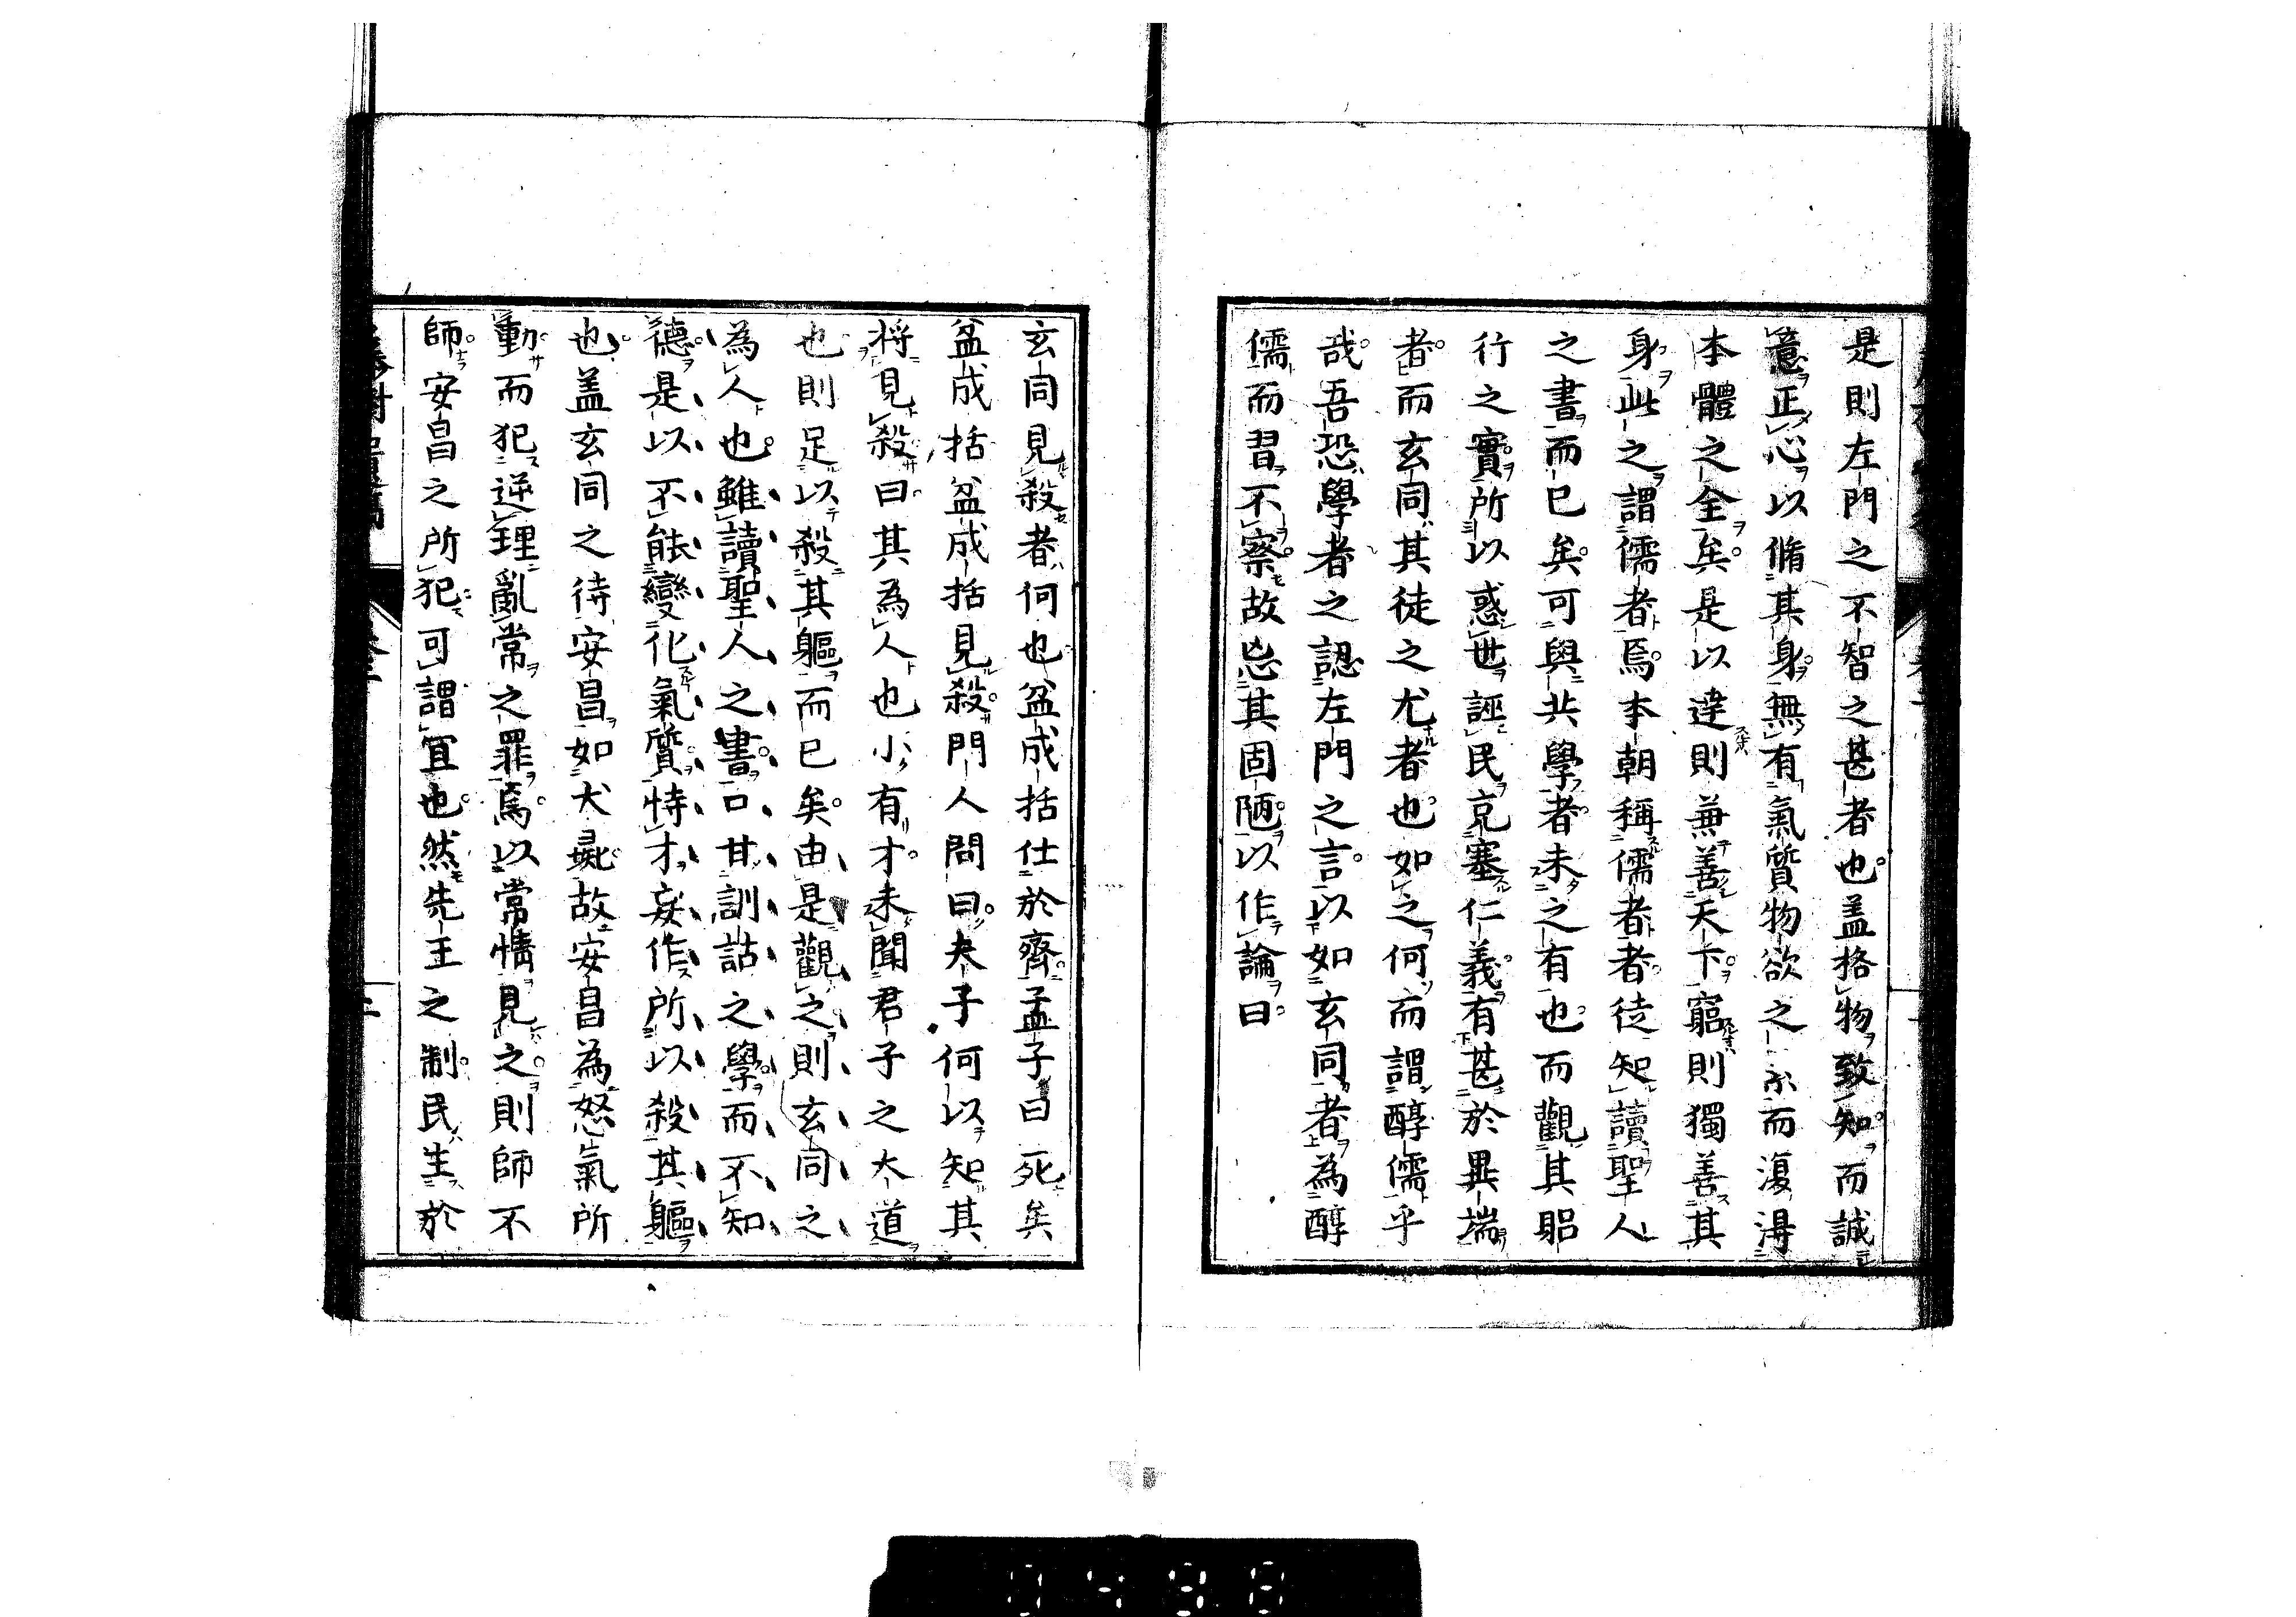 是則左門之不智之甚者也盖格物致知而誠
意正心以脩其身無有氣質物欲之而復得
本體之全矣是以達則兼善天下窮則獨善其
身此之謂儒者焉本朝稱儒者者徒知讀聖人
之書而已矣可與共學者未之有也而觀其躬
行之實所以惑世誣民充塞仁義有甚於異端
者而玄同其徒之尤者也如之何而謂醇儒乎
哉吾恐學者之認左門之言以如玄同者為醇
儒而習不察故忘其固陋以作論曰
玄同見殺者何也盆成括仕於齊孟子曰死矣
盆成括盆成括見殺門人問曰夫子何以知其
将見殺曰其為人也小有才未聞君子之大道
也則足以殺其軀而已矣由是觀之則玄同之
為人也雖讀聖人之書口甘訓詁之學而不知
德是以不能變化氣質恃才妄作所以殺其軀
也盖玄同之待安昌如犬彘故安昌為怒氣所
動而犯逆理亂常之罪焉以常情見之則師不
師安昌之所犯可謂宜也然先王之制民生於